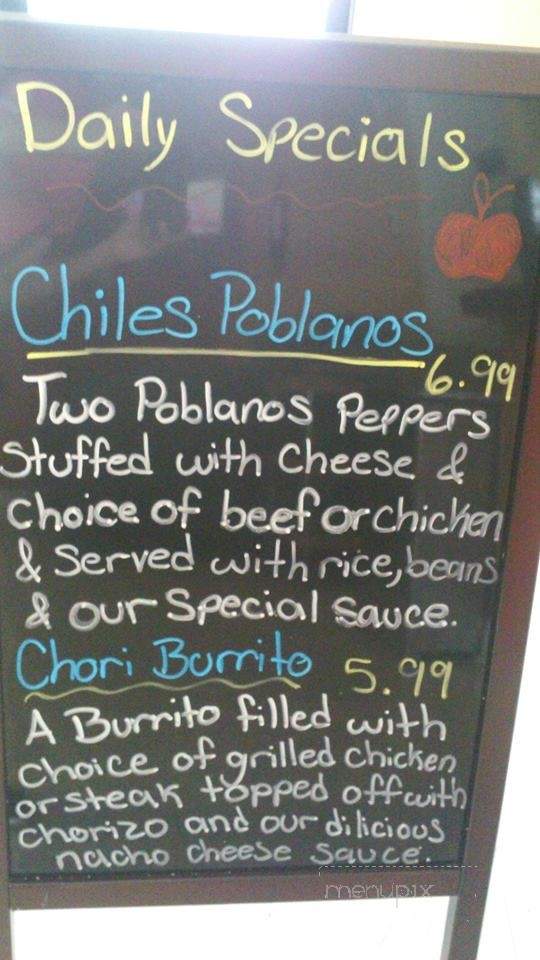 Daily Specials
Chiles Poblanos
6.99
Two Poblanos Peppers
Stuffed with Cheese &
choice of beef or chicken
& Served with rice, beans
& our Special Sauce.
Chori Burrito 5.99
A Burrito filled with
choice of grilled chicken
or steak topped off with
chorizo and our dilicious
nacho cheese sauce.
menupix